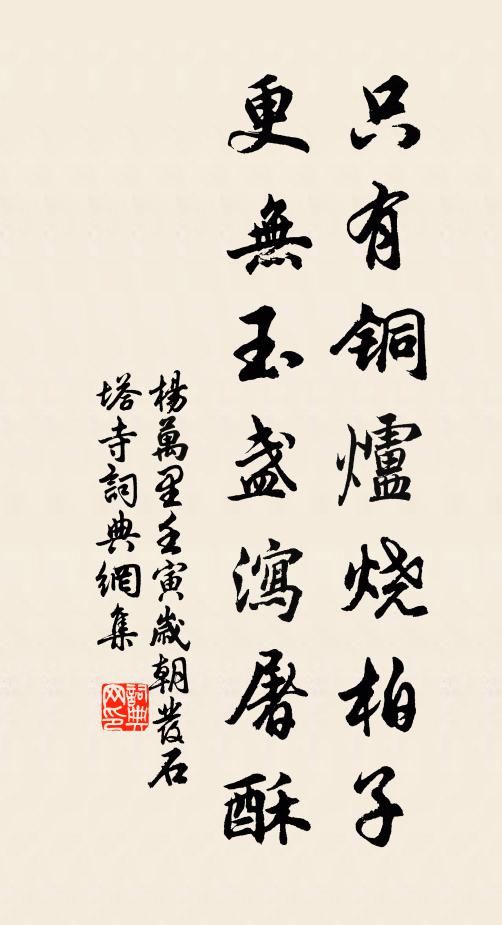 只有铜爐烧柏子
更無玉盏瀉屠酥
楊萬里壬寅歲朝發石
塔寺詞典網集
詞典网印